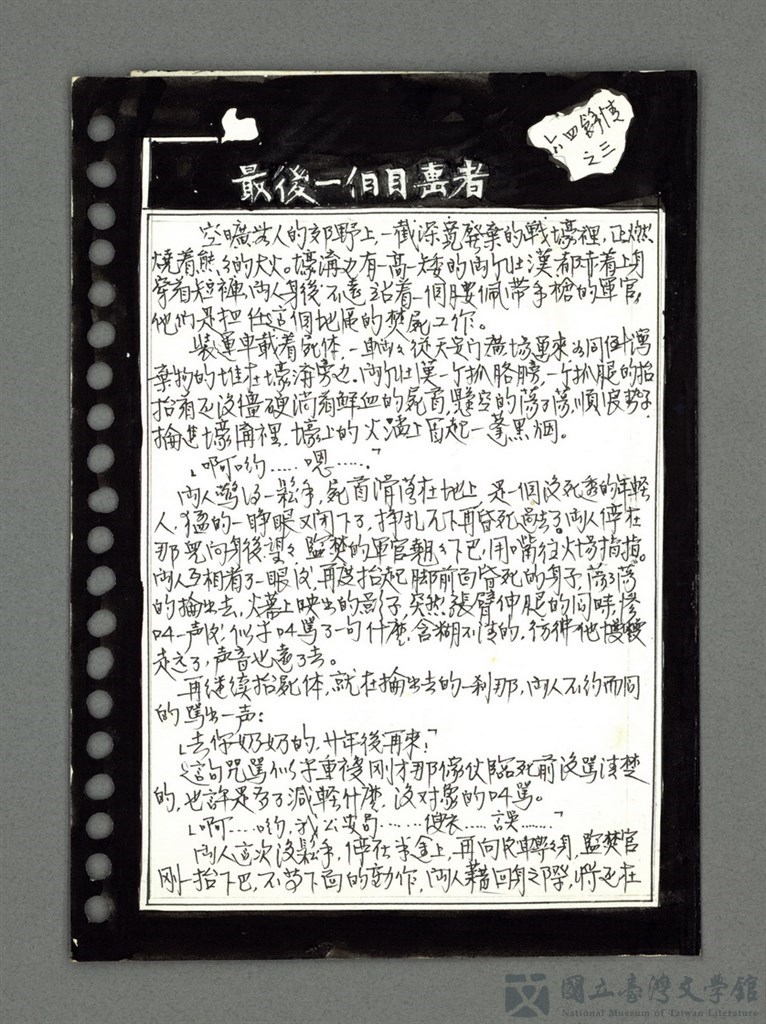 六四餘情
之三
最後一個目擊者
空曠無人的郊野上,一截深寬廢棄的戰壕裡,正燃
燒着熊々的大火。壕溝边有一高一矮的兩个壯漢,都赤着上身
穿着短褲,兩人身後不遠站着一個腰佩帶手槍的軍官,
他們是担任這個地區的焚屍工作。
裝運車載着屍体,一車々從天安門廣場運來,如同倒瀉
棄物的堆在壕溝旁边。兩个壯漢一个扒胳膊,一个扒腿的抬
抬着还沒僵硬淌着鮮血的屍首,懸空的蕩了蕩,順役勢子
掄進壕溝裡,壕上的火焰上冒起一蓬黑烟。
「啊喲……嗯……」
兩人驚得一鬆手,屍首滑落在地上,是一個沒死透的年輕
人,猛的一睁眼又闭下了,挣扎不下再昏死過去了。兩人停在
那兒向身後望々,監焚的軍官翹々下巴,用嘴往火場指指。
兩人互相看了一眼后,再度抬起腳前面昏死的身子,蕩了蕩
的掄出去,火幕上映出的影子,突然張臂伸腿的同時,慘
叫一声后,似乎叫罵了一句什麼,含糊不清的,彷彿他慢慢
走去了,声音也遠了去。
再继续抬屍体,就在掄出去的一刹那,兩人不約而同
的罵出一声:
「去你奶奶的,廿年後再來!」
這句咒罵似乎重複剛才那傢伙臨死前沒罵清楚
的,也許是為了減輕什麼,沒对象的叫罵。
「啊……喲,我公安局……便衣……誤……」
兩人這次沒鬆手,停在半途上,再向后轉々身,監焚官
剛一抬下巴,不等下面的動作,兩人藉回身之際,將还在
國立臺灣文學館
National Museum of Taiwan Literature